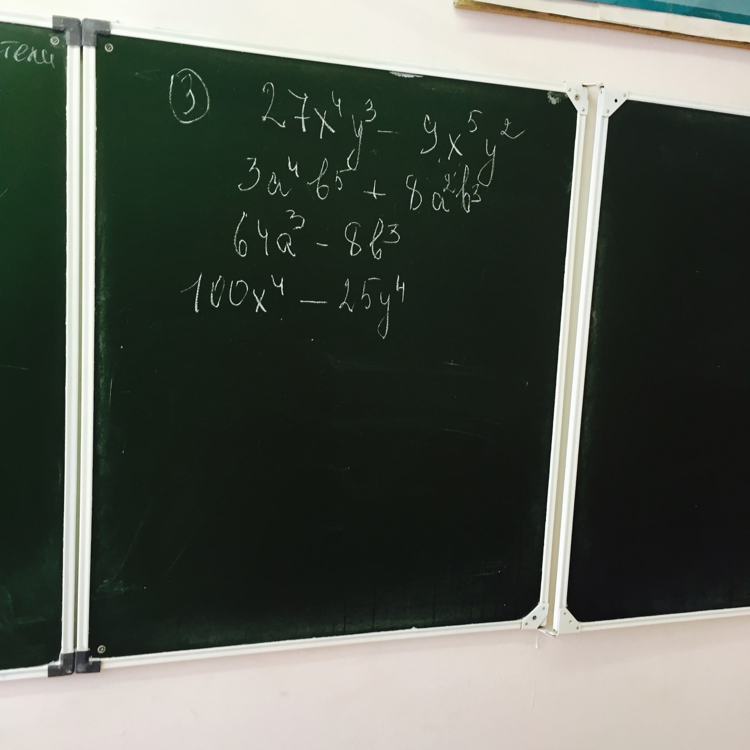 тели
③ 27x⁴y³ - 9x⁵y²
3a⁴b⁵ + 8a²b³
64a³ - 8b³
100x⁴ - 25y⁴